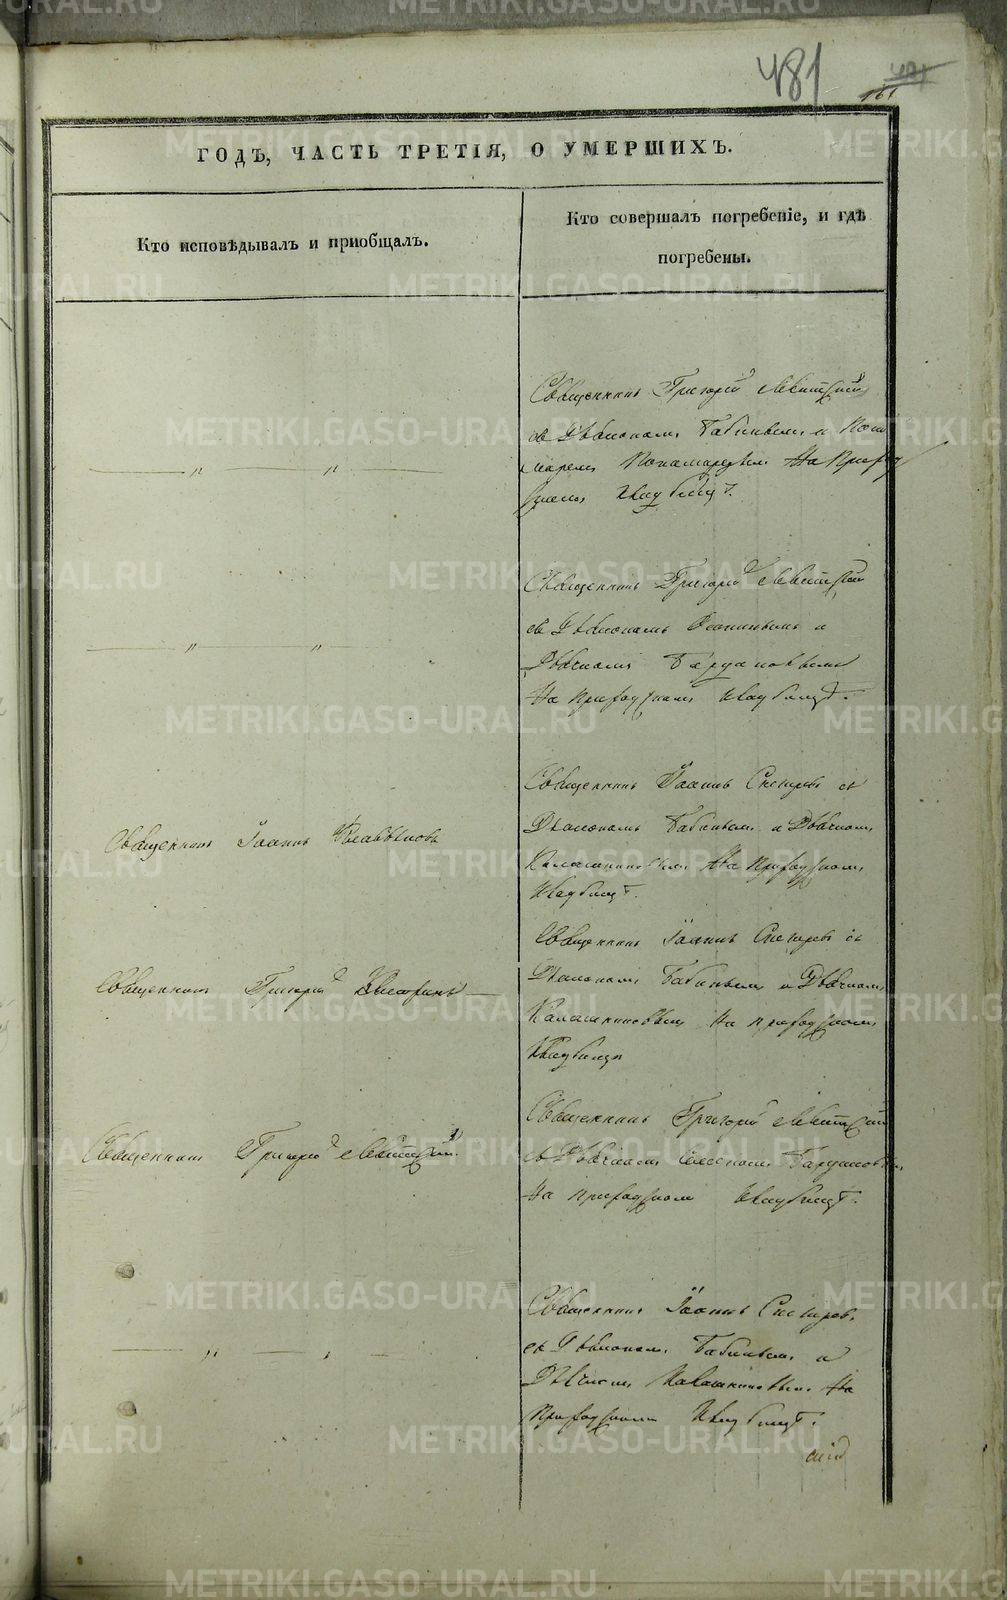 481
161
ГОДЪ, ЧАСТЬ ТРЕТІЯ, О УМЕРШИХЪ.
Кто исповѣдывалъ и пріобщалъ.
Кто совершалъ погребеніе, и гдѣ
погребены.
Священникъ Григорій Левитскій
съ Діакономъ Бабинымъ и Поно
маремъ Пономаревымъ На Приход
скомъ Кладбищѣ.
— „ — „ —
Священникъ Григорій Левитскій
съ Діакономъ и
Дьячкомъ
На Приходскомъ Кладбищѣ.
— „ — „ —
Священникъ Іоаннъ
Священникъ Іоаннъ Снегиревъ съ
Діакономъ Бабинымъ и Дьячкомъ
Калашниковымъ На Приходскомъ
Кладбищѣ.
Священникъ Григорій
Священникъ Іоаннъ Снегиревъ съ
Діакономъ Бабинымъ и Дьячкомъ
Калашниковымъ На приходскомъ
Кладбищѣ
Священникъ Григорій Левитскій
Священникъ Григорій Левитскій
съ Дьячкомъ
На приходскомъ Кладбищѣ.
Священникъ Іоаннъ Снегиревъ
съ Діакономъ Бабинымъ и
Дьячкомъ Калашниковымъ На
Приходскомъ Кладбищѣ.
— „ — , —
METRIKI.GASO-URAL.RU